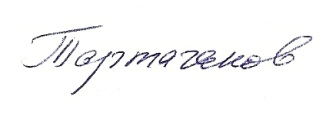 Тартачаков